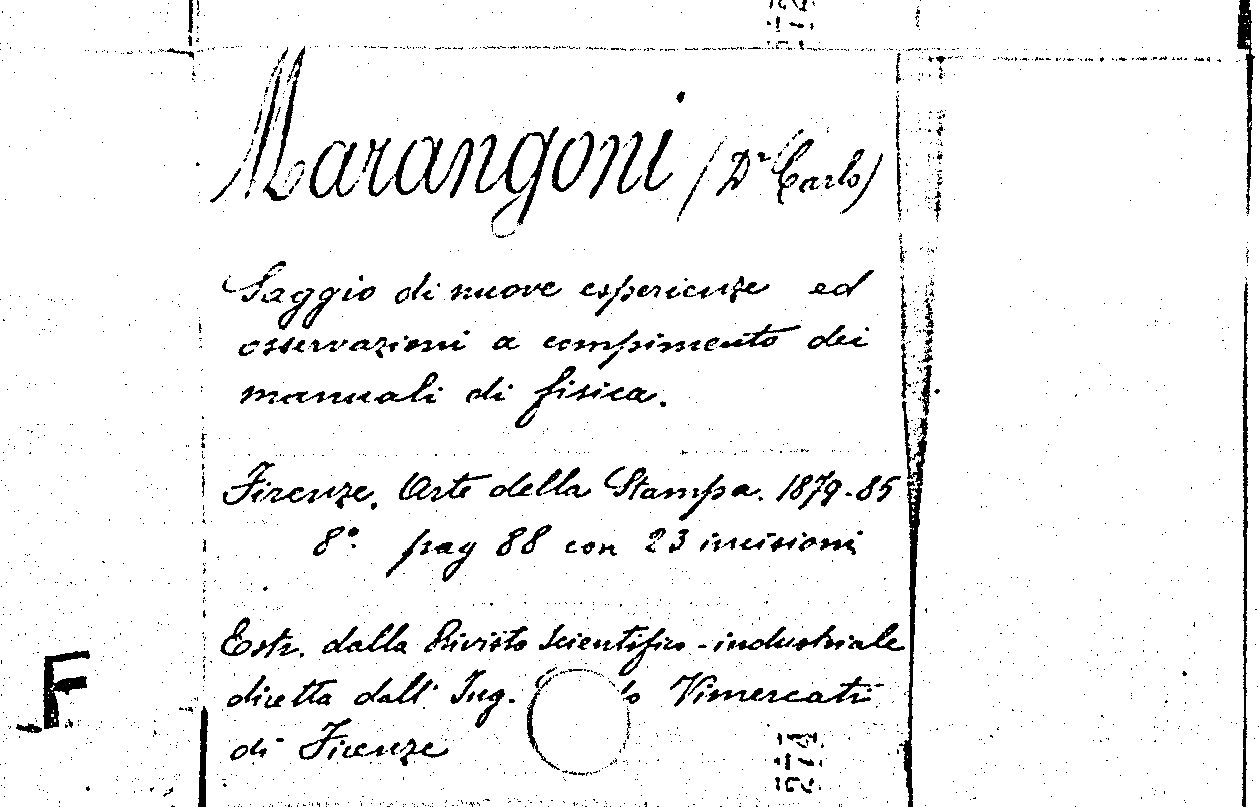 Marangoni (Dr Carlo)
Saggio di nuove esperienze ed
osservazioni a compimento dei
manuali di fisica.
Firenze. Arte della Stampa. 1879-85
8°. pag 88 con 23 incisioni
Estr. dalla Rivista Scientifico-industriale
diretta dall' Ing. Vimercati
di Firenze
F